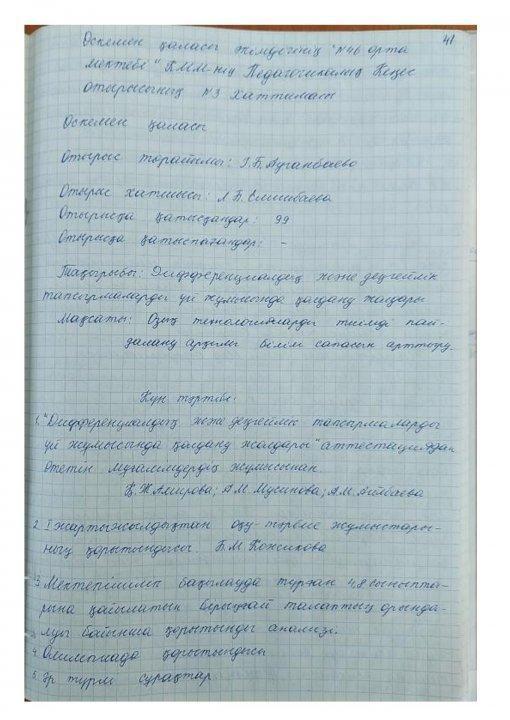 41
Өскемен қаласы әкімдігінің "№46 орта
мектебі" КММ-нің Педагогикалық Кеңес
отырысының №3 Хаттамасы
Өскемен қаласы
Отырыс төрайымы: Г.Б.Ауганбаева
Отырыс хатшысы: Л.Б.
Отырысқа қатысқандар: 99
Отырысқа қатыспағандар: -
Тақырыбы: Дифференциалдық және деңгейлік
тапсырмаларды үй жұмысында қолдану жолдары
Мақсаты: Оқыту технологияларды тиімді пай-
даланау арқылы білім сапасын арттыру.
Күн тәртібі:
1. "Дифференциалдық және деңгейлік тапсырмаларды
үй жұмысында қолдану жолдары" аттестациядан
өтетін мұғалімдердің жұмысынан
Қ.Ж.Амирова; А.М.Мусинова; А.М.Айбаева
2. I жартыжылдықтан оқу-тәрбие жұмыстары-
ның қорытындысы. Б.М.Кожикова
3. Мектепішілік бақылауда тұрған 4,8 сыныпта-
рына қойылатын бірыңғай талаптың орында-
луы бойынша қорытынды анализі.
4. Олимпиада қорытындысы
5. Әр түрлі сұрақтар